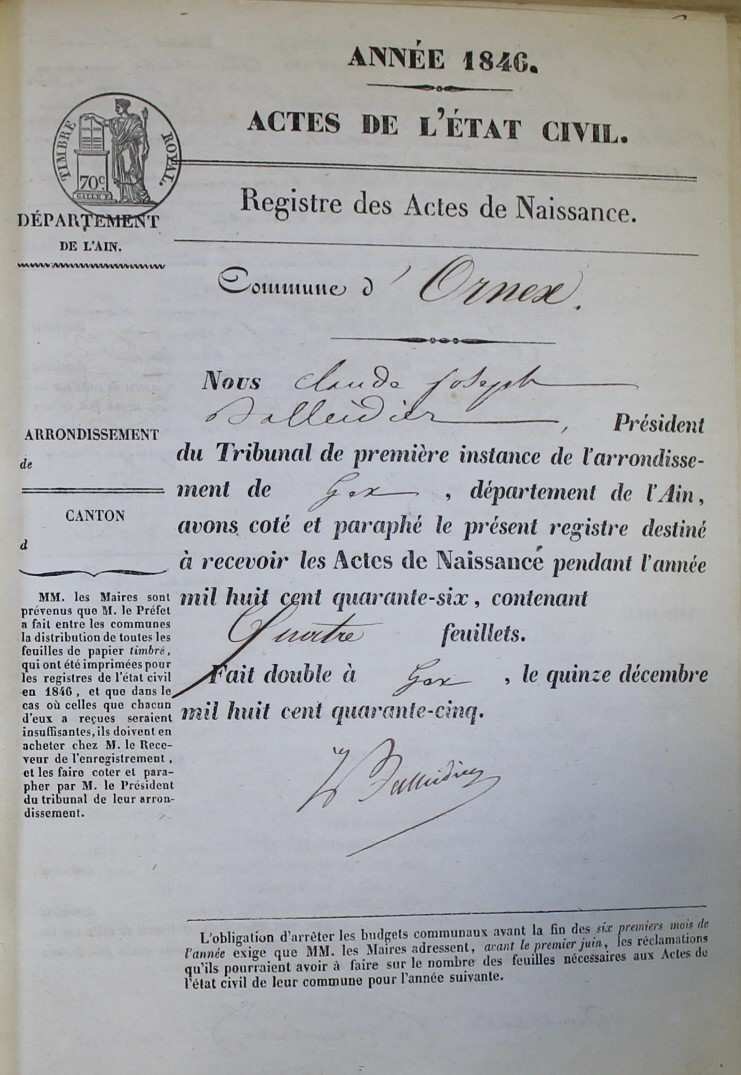 ANNÉE 1846.
ACTES DE L'ÉTAT CIVIL.
TIMBRE ROYAL.
70c
DÉPARTEMENT
DE L'AIN.
Registre des Actes de Naissance.
Commune d'Ornex.
Nous Claude Joseph
, Président
du Tribunal de première instance de l'arrondisse-
ment de Gex, département de l'Ain,
avons coté et paraphé le présent registre destiné
à recevoir les Actes de Naissance pendant l'année
mil huit cent quarante-six, contenant
Quatre feuillets.
Fait double à Gex, le quinze décembre
mil huit cent quarante-cinq.
ARRONDISSEMENT
de
CANTON
d
MM. les Maires sont
prévenus que M. le Préfet
a fait entre les communes
la distribution de toutes les
feuilles de papier timbré,
qui ont été imprimées pour
les registres de l'état civil
en 1846, et que dans le
cas où celles que chacun
d'eux a reçues seraient
insuffisantes, ils doivent en
acheter chez M. le Rece-
veur de l'enregistrement,
et les faire coter et para-
pher par M. le Président
du tribunal de leur arron-
dissement.
L'obligation d'arrêter les budgets communaux avant la fin des six premiers mois de
l'année exige que MM. les Maires adressent, avant le premier juin, les réclamations
qu'ils pourraient avoir à faire sur le nombre des feuilles nécessaires aux Actes de
l'état civil de leur commune pour l'année suivante.